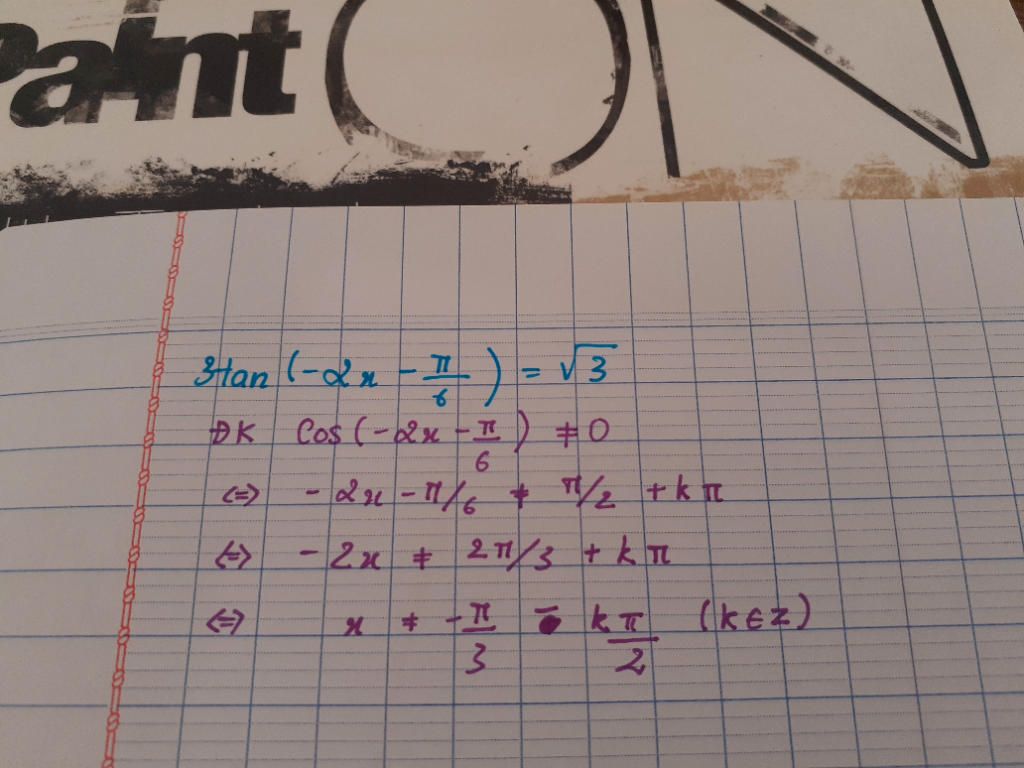 Paint ON
3tan (-2x - π/6) = √3
ĐK Cos (-2x - π/6) ≠ 0
<=> -2x - π/6 ≠ π/2 + kπ
<=> -2x ≠ 2π/3 + kπ
<=> x ≠ -π/3 - kπ/2 (k ∈ z)